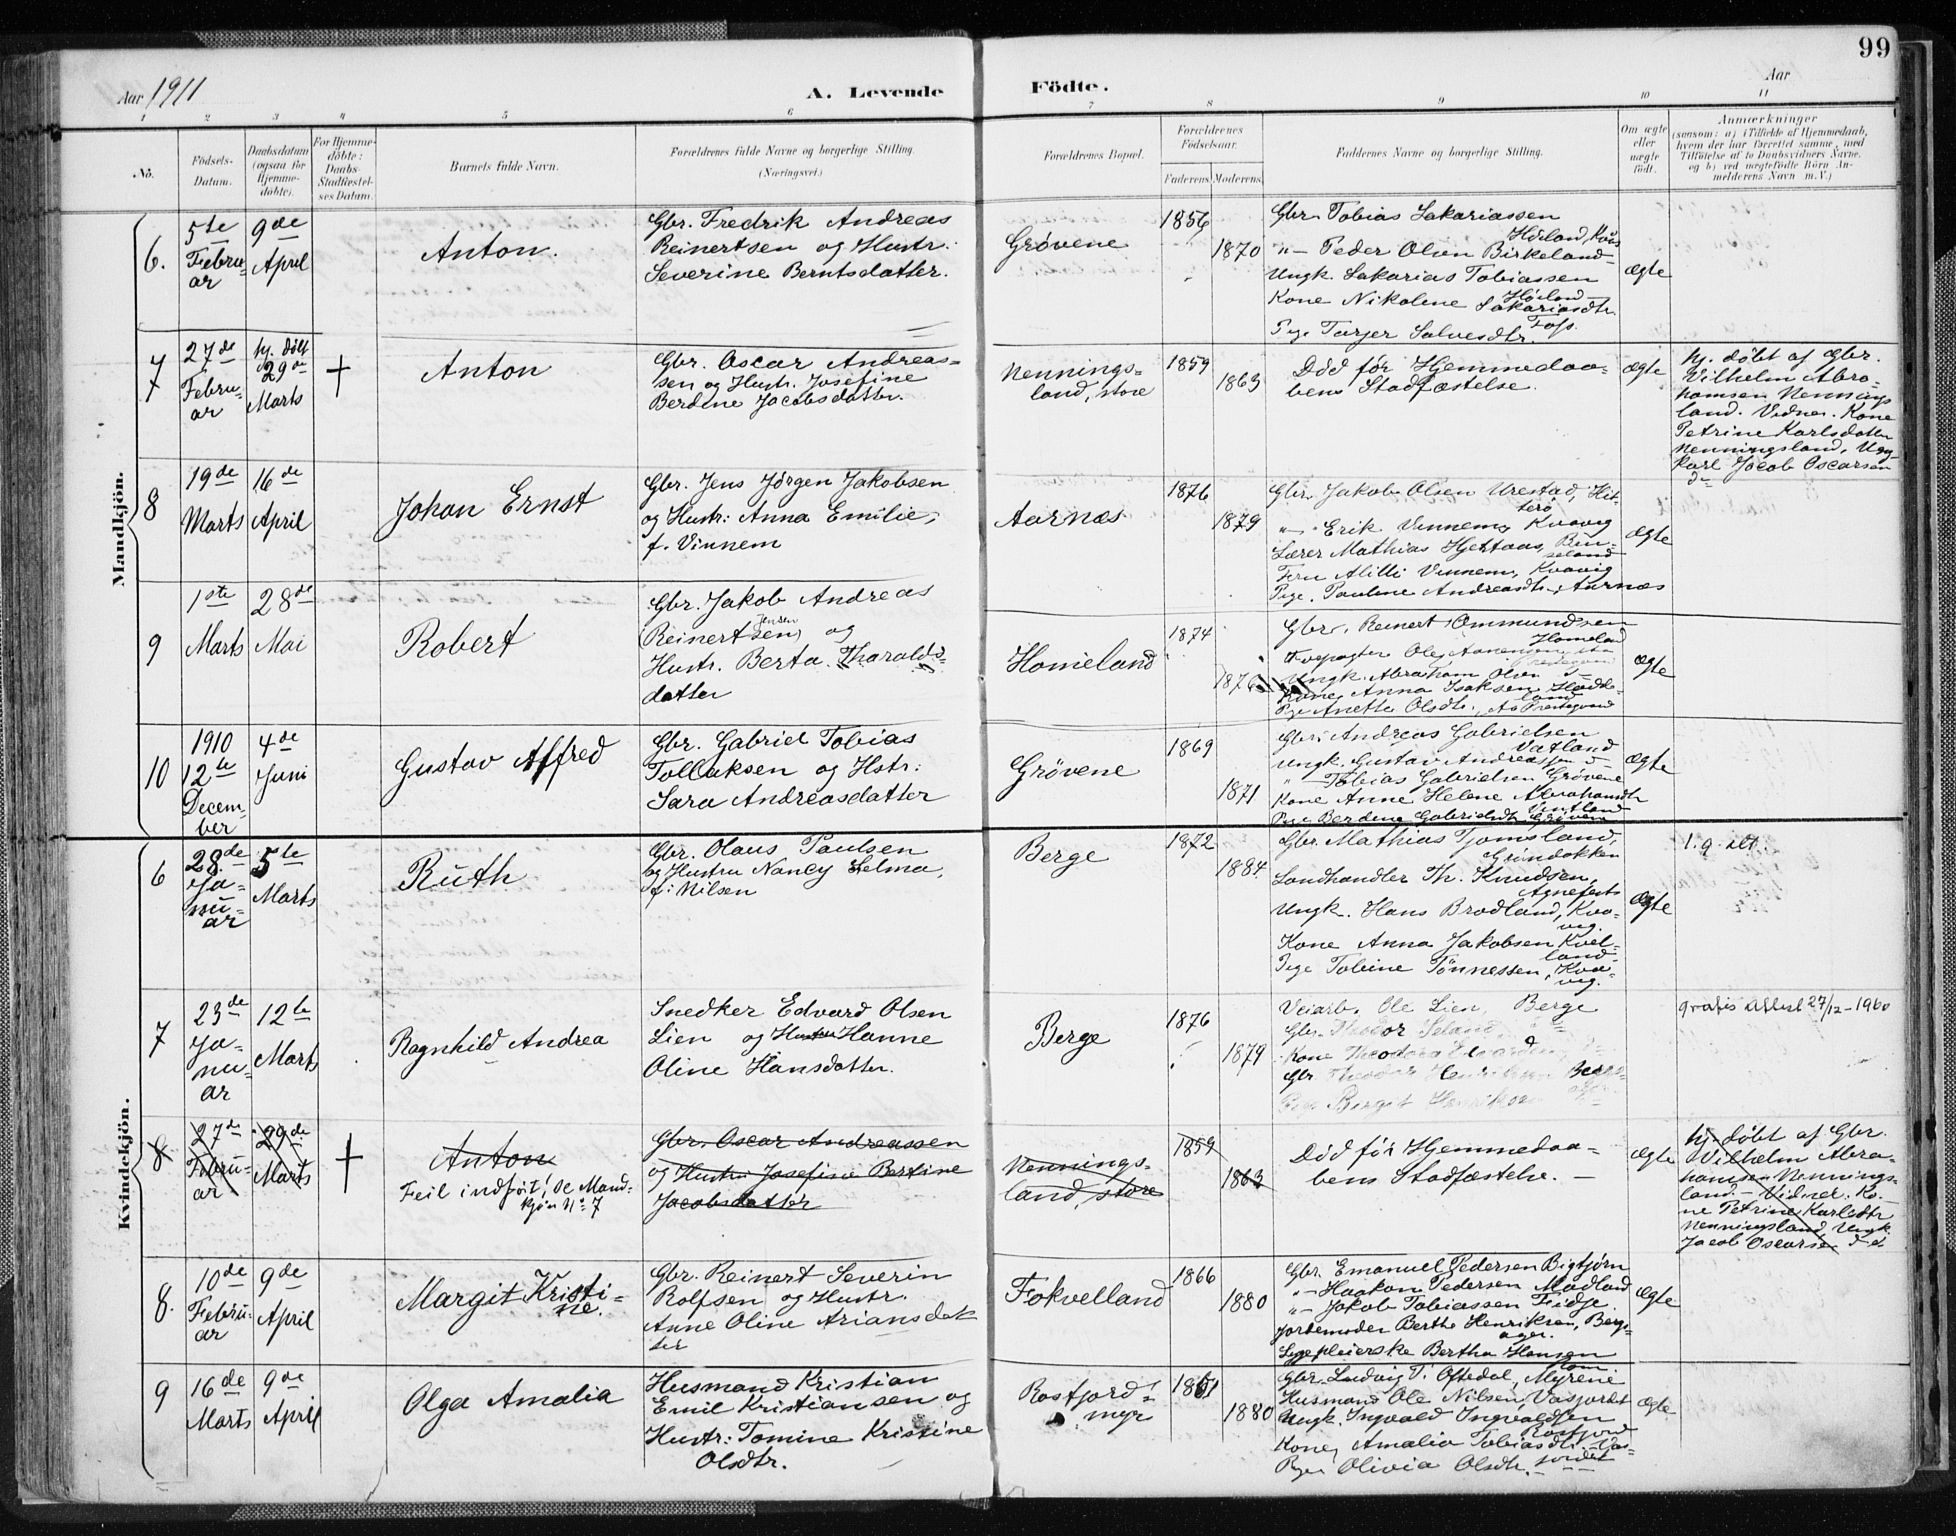 99
Aar 1911
A. Levende Födte.
Aar
1 2 3 4 5 6 7 8 9 10 11
No.
Födsels-
Datum.
Daabsdatum
(ogsaa for
Hjemme-
döbte).
For Hjemme-
döbte:
Daabs-
Stadfæstel-
ses Datum.
Barnets fulde Navn.
Forældrenes fulde Navne og borgerlige Stilling.
(Næringsvei.)
Forældrenes Bopæl.
Forældrenes
Födselsaar.
Faderens. Moderens.
Faddernes Navne og borgerlige Stilling.
Om ægte
eller
uægte
födt.
Anmærkninger
(saasom: a) i Tilfælde af Hjemmedaab,
hvem der har forrettet samme, med
Tilföielse af to Daabsvidners Navne,
og b) ved uægtefödte Börn An-
melderens Navn m. V.)
Mandkjön.
6.
5te
Febru-
ar
9de
April
Anton.
Gbr. Fredrik Andreas
Reinertsen og Hustr.:
Severine Berntsdatter.
Grövene
1856
1870
Gbr. Tobias Sakariassen
Höiland, Kvås
"- Peder Olsen Birkeland
Ungk. Sakarias Tobiassen
Höiland
Kone Nikolene Sakariasdtr.
Foss.
Pige Tarjer Salvesdtr.
ægte
7
27de
Febru-
ar
hj. döbt
29de
Marts
+
Anton
Gbr. Oscar Andreas-
sen og Hustr. Josefine
Berdine Jacobsdatter.
Nennings-
land, store
1859
1863
Död før Hjemmedaa-
bens Stadfæstelse.
ægte
hj. döbt af Gbr.
Vilhelm Abra-
hamsen Nennings
land. Vidner. Kone
Petrine Karlsdatter
Nenningsland, Ung-
karl Jacob Oscarsen
d-
8
19de
Marts
16de
April
Johan Ernst
Gbr. Jens Jörgen Jakobsen
og Hustr: Anna Emilie,
f. Vinnem
Aarnæs
1876
1879
Gbr. Jakob Olsen Urestad, Hit-
terö
"- Erik Vinnem, Kvavig
Lærer Mathias Hjertaas,
Fru Alilli Vinnem, Kvavig
Pige. Pauline Andreasdtr. Aarnæs
ægte
9
1ste
Marts
28de
Mai
Robert
Gbr. Jakob Andreas
Jensen
(Reinertsen) og
Hustr. Berta Tharalds-
datter
Homeland
1874
1876
Gbr. Reinert Ommundsen
Homeland
Ungk. Abraham Olsen
Kone Anna Isaksen
Pige Anette Olsdtr.
ægte
10
1910
12te
Decem-
ber
4de
Juni
Gustav Alfred
Gbr. Gabriel Tobias
Tollaksen og Hstr:
Sara Andreasdatter
Grövene
1869
1871
Gbr. Andreas Gabrielsen
Vatland
Ungk. Gustav Andreassen d-
"- Tobias Gabrielsen Grövene
Kone Anne Helene Abrahamdtr
Vintland
Pige Berdine Gabrielsdtr Grövene
ægte
Kvindekjön.
6
28de
Ja-
nu-
ar
5te
Marts
Ruth
Gbr. Olaus Paulsen
og Hustru Nancy Selma,
f: Nilsen
Berge
1872
1884
Gbr. Mathias Tjomsland,
Gröndokken
Landhandler Th. Knudsen,
Agnefest
Ungk. Hans Brodland, Kva-
vig.
Kone Anna Jakobsen Kvel-
land
Pige Tobine Tönnessen, Kva-
vig.
ægte
1. g. att.
7
23de
Ja-
nu-
ar
12te
Marts
Ragnhild Andrea
Snedker Edvard Olsen
Lien og Hustru Hanne
Oline Hansdatter.
Berge
1876
1879
Veiarb. Ole Lien, Berge
Gbr. Theodor
Kone Theodora
Gbr. Theodor Henriksen
Pige Bergit Henriksen
gratis attest 27/12-1960
8
27de
Febru-
ar
29de
Marts
+
Anton
Feil indfört! Se Mand-
kjön No 7
Gbr. Oscar Andreassen
og Hustru Josefine Bertine
Jacobsdatter
Nennings-
land, store
1859
1863
Död før Hjemmedaa-
bens Stadfæstelse. -
ægte
hj. döbt af Gbr.
Vilhelm Abra-
hamsen Nennings-
land. - Vidner. Ko-
ne Petrine Karlsdtr
Nenningsland, Ungk.
Jacob Oscarsen d-
8.
10de
Febru-
ar
9de
April
Margit Kristi-
ne.
Gbr. Reinert Severin
Rolfsen og Hustr.
Anne Oline Ariansdat
ter
Fokvelland
1866
1880
Gbr. Emanuel Pedersen Bigtjörn
"- Haakon Pedersen Modland
"- Jakob Tobiassen Fidje.
Jordemoder Berthe Henriksen, Bergs-
ager.
Sygepleierske Bertha Hansen
ægte
9
16de
Marts
9de
April
Olga Amalia
Husmand Kristian
Emil Kristiansen og
Hustr: Tomine Kristine
Olsdtr.
Rosfjord-
myr
1880
Gbr. Ludvig T. Oftedal, Myrene
Husmand Ole Nilsen, Vasjordet
Ungk. Ingvald Ingvaldsen
Rosfjord
Kone, Amalia Tobiasdtr. Vas-
jordet
Pige Olivia Olsdtr. - - -
ægte